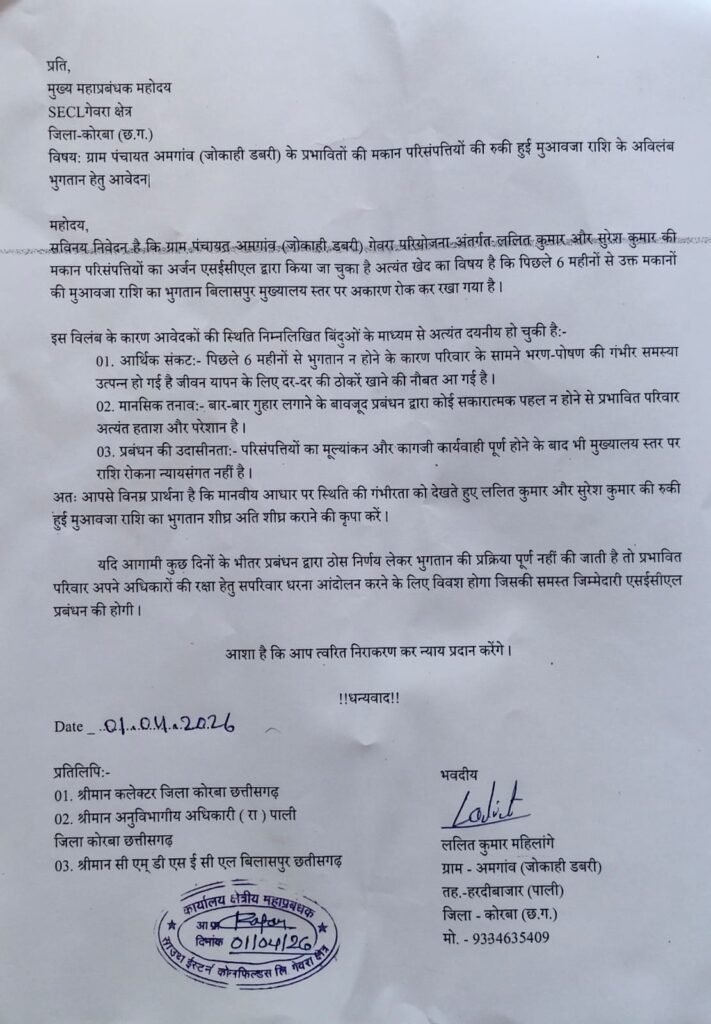 प्रति,
मुख्य महाप्रबंधक महोदय
SECLगेवरा क्षेत्र
जिला-कोरबा (छ.ग.)
विषय: ग्राम पंचायत अमगांव (जोकाही डबरी) के प्रभावितों की मकान परिसंपत्तियों की रुकी हुई मुआवजा राशि के अविलंब
भुगतान हेतु आवेदन|
महोदय,
सविनय निवेदन है कि ग्राम पंचायत अमगांव (जोकाही डबरी) गेवरा परियोजना अंतर्गत ललित कुमार और सुरेश कुमार की
मकान परिसंपत्तियों का अर्जन एसईसीएल द्वारा किया जा चुका है अत्यंत खेद का विषय है कि पिछले 6 महीनों से उक्त मकानों
की मुआवजा राशि का भुगतान बिलासपुर मुख्यालय स्तर पर अकारण रोक कर रखा गया है।
इस विलंब के कारण आवेदकों की स्थिति निम्नलिखित बिंदुओं के माध्यम से अत्यंत दयनीय हो चुकी है:-
01. आर्थिक संकट:- पिछले 6 महीनों से भुगतान न होने के कारण परिवार के सामने भरण-पोषण की गंभीर समस्या
उत्पन्न हो गई है जीवन यापन के लिए दर-दर की ठोकरें खाने की नौबत आ गई है।
02. मानसिक तनाव:- बार-बार गुहार लगाने के बावजूद प्रबंधन द्वारा कोई सकारात्मक पहल न होने से प्रभावित परिवार
अत्यंत हताश और परेशान है।
03. प्रबंधन की उदासीनता:- परिसंपत्तियों का मूल्यांकन और कागजी कार्यवाही पूर्ण होने के बाद भी मुख्यालय स्तर पर
राशि रोकना न्यायसंगत नहीं है।
अतः आपसे विनम्र प्रार्थना है कि मानवीय आधार पर स्थिति की गंभीरता को देखते हुए ललित कुमार और सुरेश कुमार की रुकी
हुई मुआवजा राशि का भुगतान शीघ्र अति शीघ्र कराने की कृपा करें।
यदि आगामी कुछ दिनों के भीतर प्रबंधन द्वारा ठोस निर्णय लेकर भुगतान की प्रक्रिया पूर्ण नहीं की जाती है तो प्रभावित
परिवार अपने अधिकारों की रक्षा हेतु सपरिवार धरना आंदोलन करने के लिए विवश होगा जिसकी समस्त जिम्मेदारी एसईसीएल
प्रबंधन की होगी।
आशा है कि आप त्वरित निराकरण कर न्याय प्रदान करेंगे।
!!धन्यवाद!!
Date _ 01.04.2026
प्रतिलिपि:-
01. श्रीमान कलेक्टर जिला कोरबा छत्तीसगढ़
02. श्रीमान अनुविभागीय अधिकारी ( रा ) पाली
जिला कोरबा छत्तीसगढ़
03. श्रीमान सी एम् डी एस ई सी एल बिलासपुर छतीसगढ़
भवदीय
Lalit
ललित कुमार महिलांगे
ग्राम - अमगांव (जोकाही डबरी)
तह.-हरदीबाजार (पाली)
जिला - कोरबा (छ.ग.)
मो. - 9334635409
कार्यालय क्षेत्रीय महाप्रबंधक
दिनांक 01/04/26
साउथ ईस्टर्न कोलफिल्डस लि गेवरा क्षेत्र